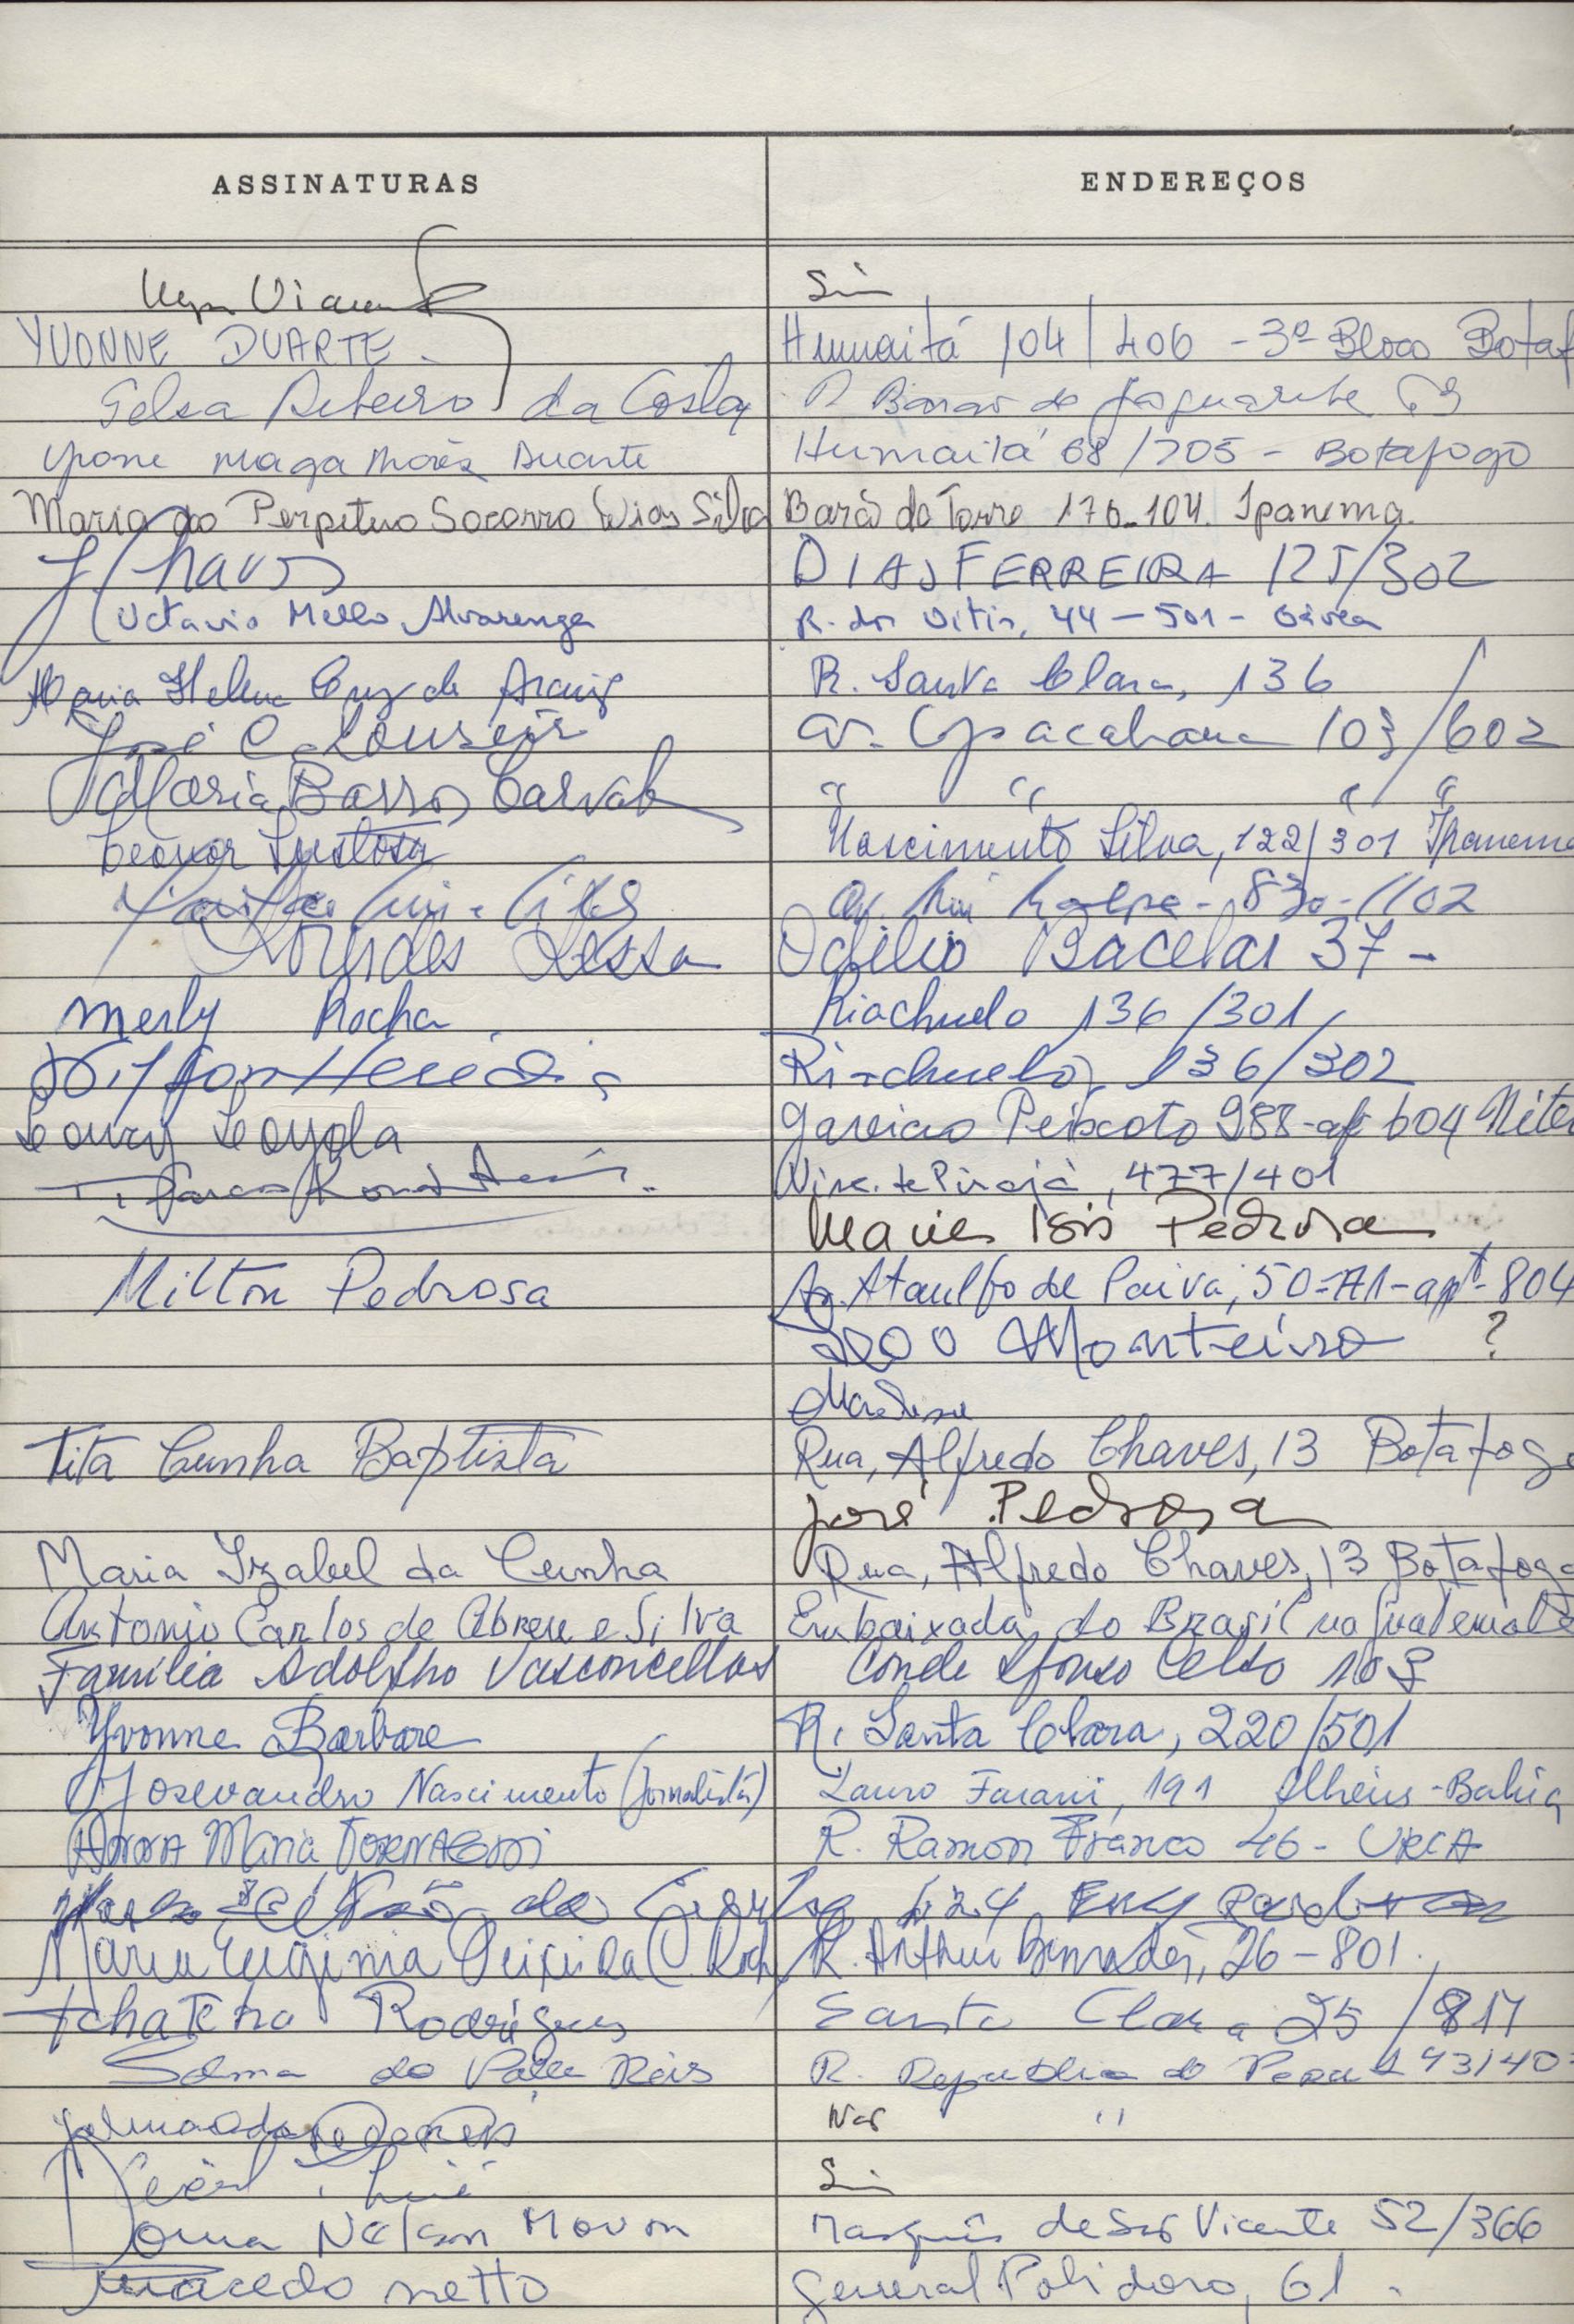 ASSINATURAS ENDEREÇOS
Sim
YVONNE DUARTE Humaitá 104/406 - 3º Bloco Botaf
Gelsa Ribeiro da Costa R Barão de Jaguaribe 69
Yvone Magalhães Duarte Humaitá 68/705 - Botafogo
Maria do Perpetuo Socorro Dias Silva Barão da Torre 170-104. Ipanema.
J Chaves DIAS FERREIRA 125/302
Octavio Mello Alvarenga R. dos Oitis, 44 - 501 - Gávea
Maria Helena Cruz de Araujo R. Santa Clara, 136
José C. Louseiro Av. Copacabana 103/602
Maria Barros Carvalho " " " "
Leonor Lustosa Nascimento Silva, 122/301 Ipanema
830-1102
Lourdes Lessa Odilio Bacelar 37 -
Merly Rocha Riachuelo 136/301
Riachuelo, 136/302
Loury Loyola Gavião Peixoto 988-ap 604 Niter
Visc. de Pirajá, 477/401
Isis Pedrosa
Milton Pedrosa Av. Ataulfo de Paiva, 50-A1-apt-804
Monteiro ?
Tita Cunha Baptista Rua, Alfredo Chaves, 13 Botafogo
José Pedrosa
Maria Izabel da Cunha Rua, Alfredo Chaves, 13 Botafogo
Antonio Carlos de Abreu e Silva Embaixada do Brasil na Guatemala
Familia Adolpho Vasconcellos Conde Afonso Celso 108
Yvonne Barbare R. Santa Clara, 220/501
Josevandro Nascimento (jornalista) Lauro Farani, 191 Ilhéus - Bahia
Anna Maria R. Ramon Franco 46 - URCA
Maria Eugenia Teixeira C. Roch R. Arthur Bernardes, 26 - 801.
Tchatcha Rodrigues Santa Clara 25 / 817
Selma do Valle Reis R. Republica do Peru 143/40
Sim
Nelson Marquês de São Vicente 52/366
Macedo netto General Polidoro, 61.